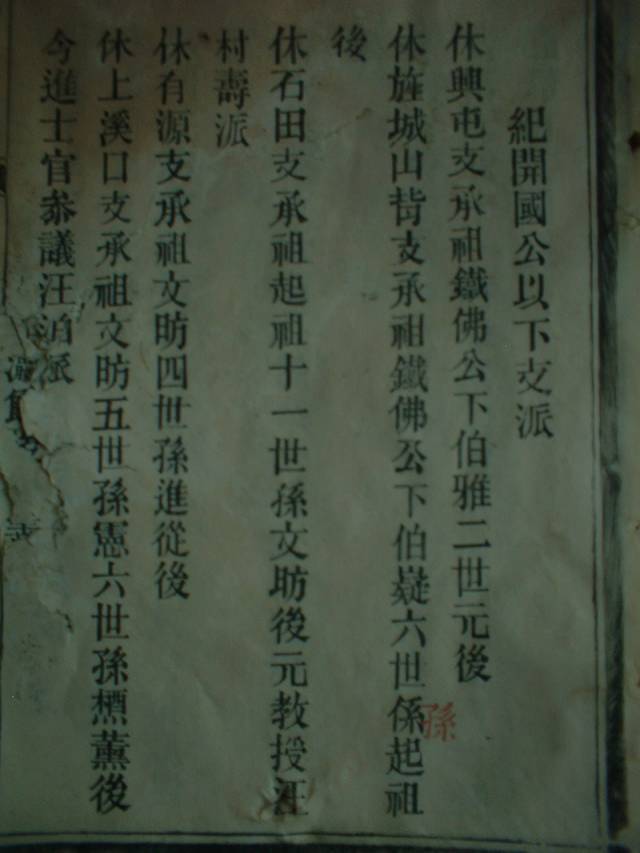 紀開國公以下支派
休興屯支承祖鐵佛公下伯雅二世元後
休旌城山背支承祖鐵佛公下伯嶷六世係起祖
孫
後
休石田支承祖起祖十一世孫文昉後元教授汪
村壽派
休有源支承祖文昉四世孫進從後
休上溪口支承祖文昉五世孫慝六世孫㷱薰後
今進士官叅議汪泊派